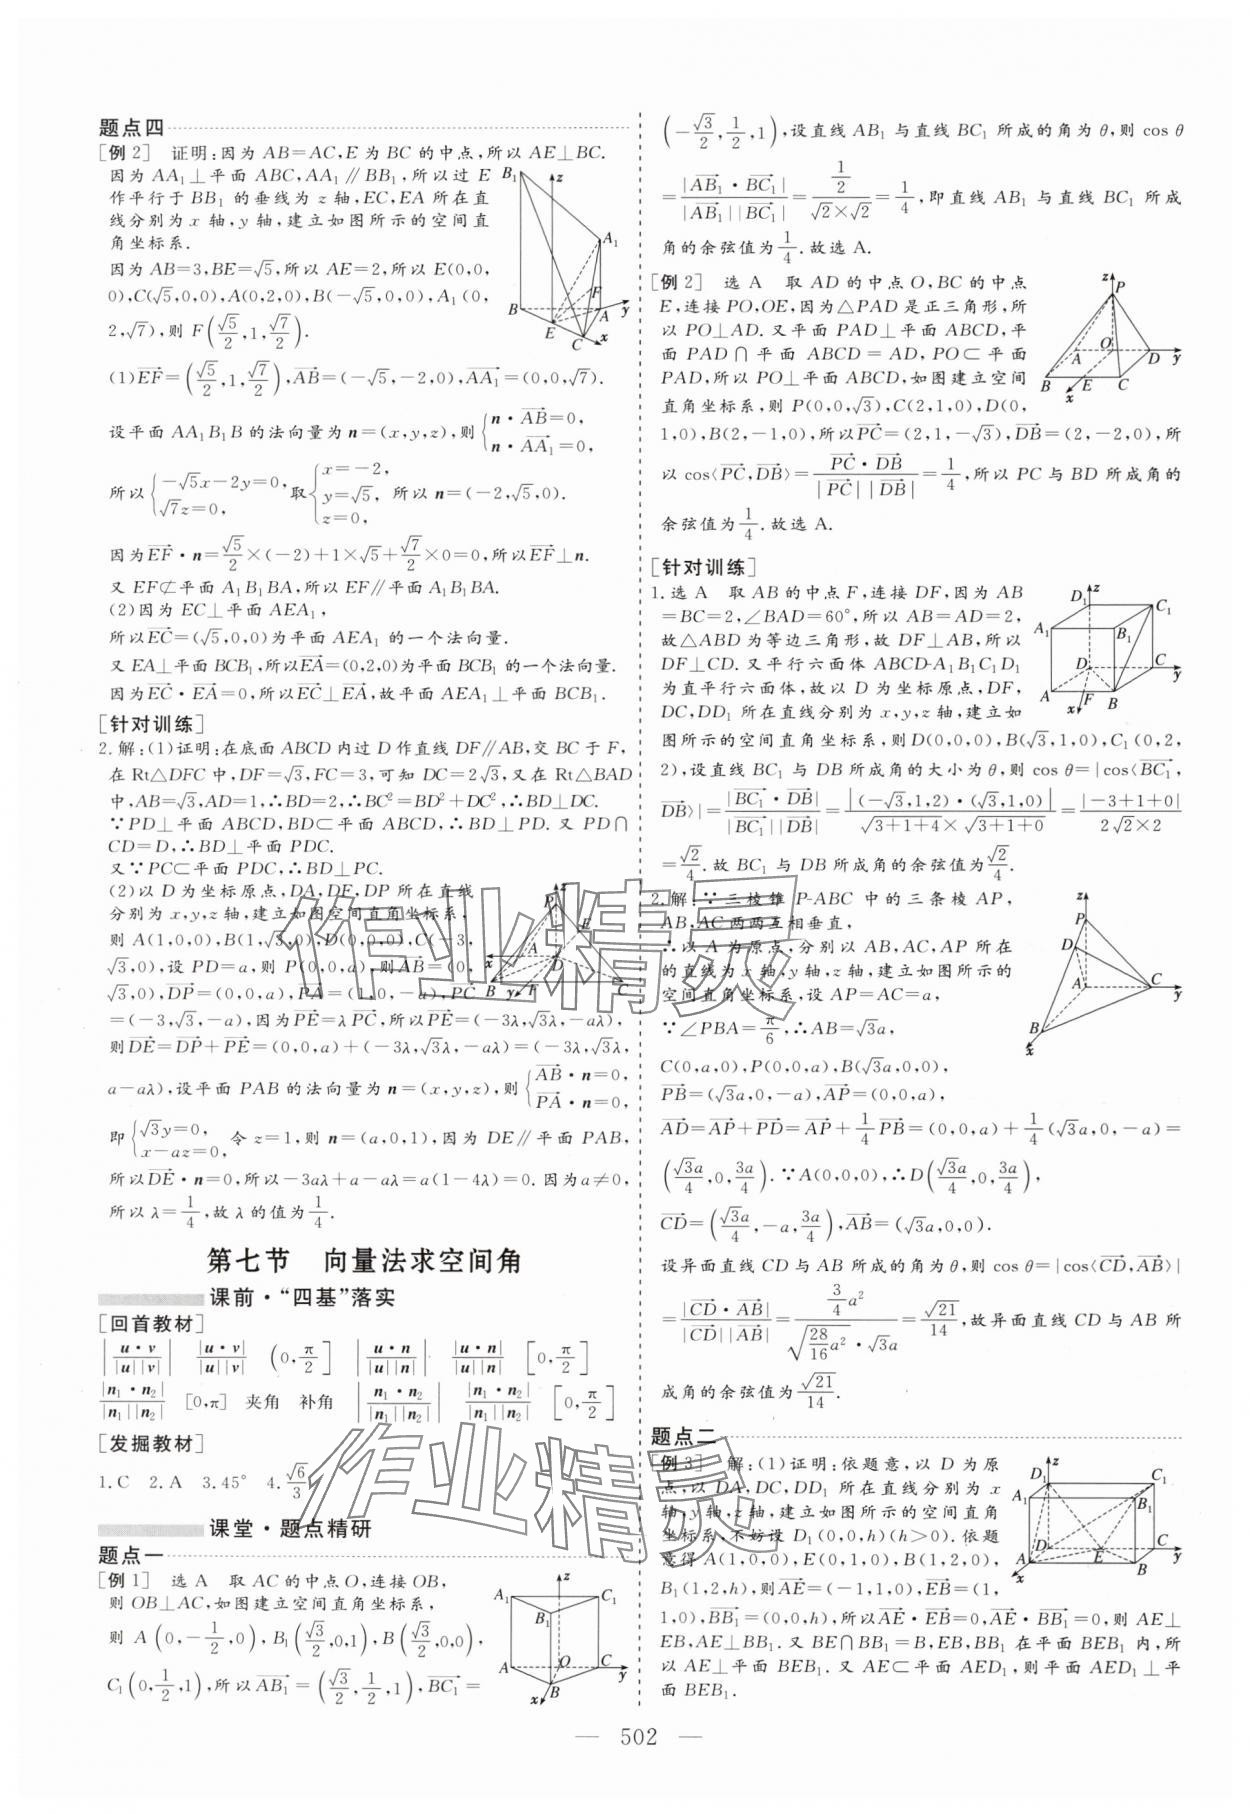 题点四
[例2] 证明:因为 AB=AC,E 为 BC 的中点,所以 AE⊥BC.
因为 AA₁⊥平面 ABC,AA₁∥BB₁,所以过 E
作平行于 BB₁ 的垂线为 z 轴,EC,EA 所在直
线分别为 x 轴,y 轴,建立如图所示的空间直
角坐标系.
因为 AB=3,BE=√5,所以 AE=2,所以 E(0,0,
0),C(√5,0,0),A(0,2,0),B(-√5,0,0),A₁(0,
2,√7),则 F(√5/2,1,√7/2).
(1)EF→=(√5/2,1,√7/2),AB→=(-√5,-2,0),AA₁→=(0,0,√7).
设平面 AA₁B₁B 的法向量为 n=(x,y,z),则{n·AB→=0, n·AA₁→=0,
所以{-√5x-2y=0, √7z=0, 取{x=-2, y=√5, z=0, 所以 n=(-2,√5,0).
因为EF→·n=√5/2×(-2)+1×√5+√7/2×0=0,所以EF→⊥n.
又 EF⊄平面 A₁B₁BA,所以 EF∥平面 A₁B₁BA.
(2)因为 EC⊥平面 AEA₁,
所以EC→=(√5,0,0)为平面 AEA₁ 的一个法向量.
又 EA⊥平面 BCB₁,所以EA→=(0,2,0)为平面 BCB₁ 的一个法向量.
因为EC→·EA→=0,所以EC→⊥EA→,故平面 AEA₁⊥平面 BCB₁.
[针对训练]
2.解:(1)证明:在底面 ABCD 内过 D 作直线 DF∥AB,交 BC 于 F,
在 Rt△DFC 中,DF=√3,FC=3,可知 DC=2√3,又在 Rt△BAD
中,AB=√3,AD=1,∴BD=2,∴BC²=BD²+DC²,∴BD⊥DC.
∵PD⊥平面 ABCD,BD⊂平面 ABCD,∴BD⊥PD. 又 PD∩
CD=D,∴BD⊥平面 PDC.
又∵PC⊂平面 PDC,∴BD⊥PC.
(2)以 D 为坐标原点,DA,DF,DP 所在直线
分别为 x,y,z 轴,建立如图空间直角坐标系,
则 A(1,0,0),B(1,√3,0),D(0,0,0),C(-3,
√3,0),设 PD=a,则 P(0,0,a),则AB→=(0,
√3,0),DP→=(0,0,a),PA→=(1,0,-a),PC→
=(-3,√3,-a),因为PE→=λPC→,所以PE→=(-3λ,√3λ,-aλ),
则DE→=DP→+PE→=(0,0,a)+(-3λ,√3λ,-aλ)=(-3λ,√3λ,
a-aλ),设平面 PAB 的法向量为 n=(x,y,z),则{AB→·n=0, PA→·n=0,
即{√3y=0, x-az=0, 令 z=1,则 n=(a,0,1),因为 DE∥平面 PAB,
所以DE→·n=0,所以-3aλ+a-aλ=a(1-4λ)=0. 因为a≠0,
所以 λ=1/4,故 λ 的值为1/4.
第七节 向量法求空间角
课前·“四基”落实
[回首教材]
|u·v/|u||v|| |u·v|/|u||v| (0,π/2] |u·n/|u||n|| |u·n|/|u||n| [0,π/2]
|n₁·n₂|/|n₁||n₂| [0,π] 夹角 补角 |n₁·n₂/|n₁||n₂|| |n₁·n₂|/|n₁||n₂| [0,π/2]
[发掘教材]
1.C 2.A 3.45° 4.√6/3
课堂·题点精研
题点一
[例1] 选 A 取 AC 的中点 O,连接 OB,
则 OB⊥AC,如图建立空间直角坐标系,
则 A(0,-1/2,0),B₁(√3/2,0,1),B(√3/2,0,0),
C₁(0,1/2,1),所以AB₁→=(√3/2,1/2,1),BC₁→=
(-√3/2,1/2,1),设直线 AB₁ 与直线 BC₁ 所成的角为 θ,则 cos θ
=|AB₁→·BC₁→|/|AB₁→||BC₁→|=(1/2)/(√2×√2)=1/4,即直线 AB₁ 与直线 BC₁ 所成
角的余弦值为1/4.故选 A.
[例2] 选 A 取 AD 的中点 O,BC 的中点
E,连接 PO,OE,因为△PAD 是正三角形,所
以 PO⊥AD. 又平面 PAD⊥平面 ABCD,平
面 PAD∩平面 ABCD=AD,PO⊂平面
PAD,所以 PO⊥平面 ABCD,如图建立空间
直角坐标系,则 P(0,0,√3),C(2,1,0),D(0,
1,0),B(2,-1,0),所以PC→=(2,1,-√3),DB→=(2,-2,0),所
以 cos⟨PC→,DB→⟩=PC→·DB→/|PC→||DB→|=1/4,所以 PC 与 BD 所成角的
余弦值为1/4.故选 A.
[针对训练]
1.选 A 取 AB 的中点 F,连接 DF,因为 AB
=BC=2,∠BAD=60°,所以 AB=AD=2,
故△ABD 为等边三角形,故 DF⊥AB,所以
DF⊥CD. 又平行六面体 ABCD-A₁B₁C₁D₁
为直平行六面体,故以 D 为坐标原点,DF,
DC,DD₁ 所在直线分别为 x,y,z 轴,建立如
图所示的空间直角坐标系,则 D(0,0,0),B(√3,1,0),C₁(0,2,
2),设直线 BC₁ 与 DB 所成角的大小为 θ,则 cos θ=|cos⟨BC₁→,
DB→⟩|=|BC₁→·DB→|/|BC₁→||DB→|=|(-√3,1,2)·(√3,1,0)|/(√3+1+4×√3+1+0)=|-3+1+0|/(2√2×2)
=√2/4.故 BC₁ 与 DB 所成角的余弦值为√2/4.
2.解:∵三棱锥 P-ABC 中的三条棱 AP,
AB,AC 两两互相垂直,
∴以 A 为原点,分别以 AB,AC,AP 所在
的直线为 x 轴,y 轴,z 轴,建立如图所示的
空间直角坐标系,设 AP=AC=a,
∵∠PBA=π/6,∴AB=√3a,
C(0,a,0),P(0,0,a),B(√3a,0,0),
PB→=(√3a,0,-a),AP→=(0,0,a),
AD→=AP→+PD→=AP→+1/4PB→=(0,0,a)+1/4(√3a,0,-a)=
(√3a/4,0,3a/4).∵A(0,0,0),∴D(√3a/4,0,3a/4),
CD→=(√3a/4,-a,3a/4),AB→=(√3a,0,0).
设异面直线 CD 与 AB 所成的角为 θ,则 cos θ=|cos⟨CD→,AB→⟩|
=|CD→·AB→|/|CD→||AB→|=(3/4a²)/(√(28/16a²)·√3a)=√21/14,故异面直线 CD 与 AB 所
成角的余弦值为√21/14.
题点二
[例3] 解:(1)证明:依题意,以 D 为原
点,以 DA,DC,DD₁ 所在直线分别为 x
轴,y 轴,z 轴,建立如图所示的空间直角
坐标系,不妨设 D₁(0,0,h)(h>0). 依题
意得 A(1,0,0),E(0,1,0),B(1,2,0),
B₁(1,2,h),则AE→=(-1,1,0),EB→=(1,
1,0),BB₁→=(0,0,h),所以AE→·EB→=0,AE→·BB₁→=0,则 AE⊥
EB,AE⊥BB₁. 又 BE∩BB₁=B,EB,BB₁ 在平面 BEB₁ 内,所
以 AE⊥平面 BEB₁. 又 AE⊂平面 AED₁,则平面 AED₁⊥平
面 BEB₁.
— 502 —
作业精灵
作业精灵